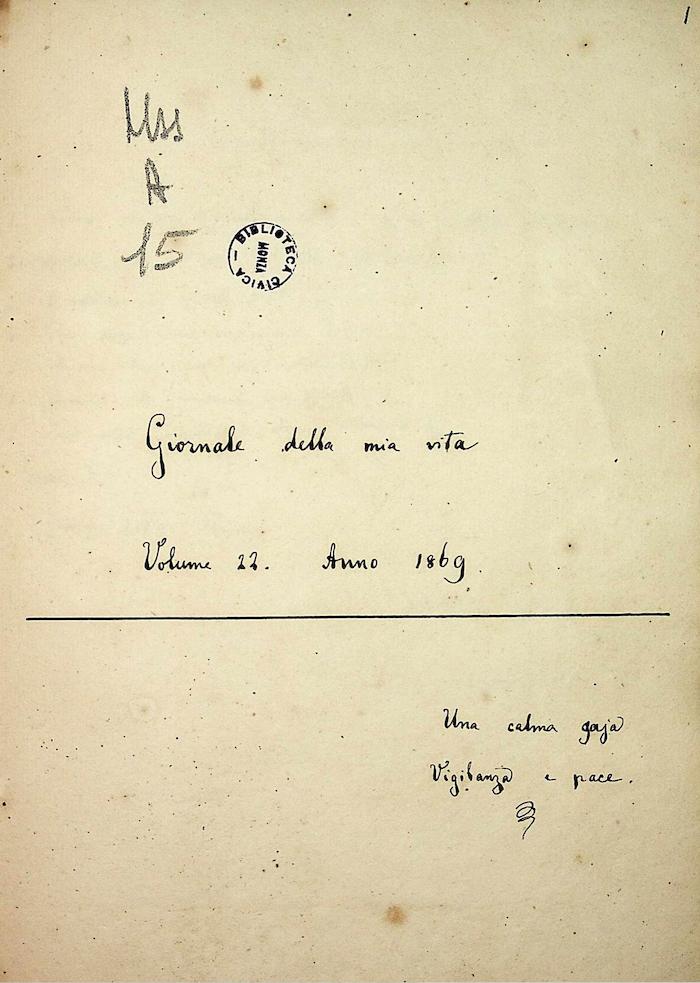 1
Mss
A
15
BIBLIOTECA CIVICA —
MONZA
Giornale della mia vita
Volume 22. Anno 1869.
Una calma gaja
Vigilanza e pace.